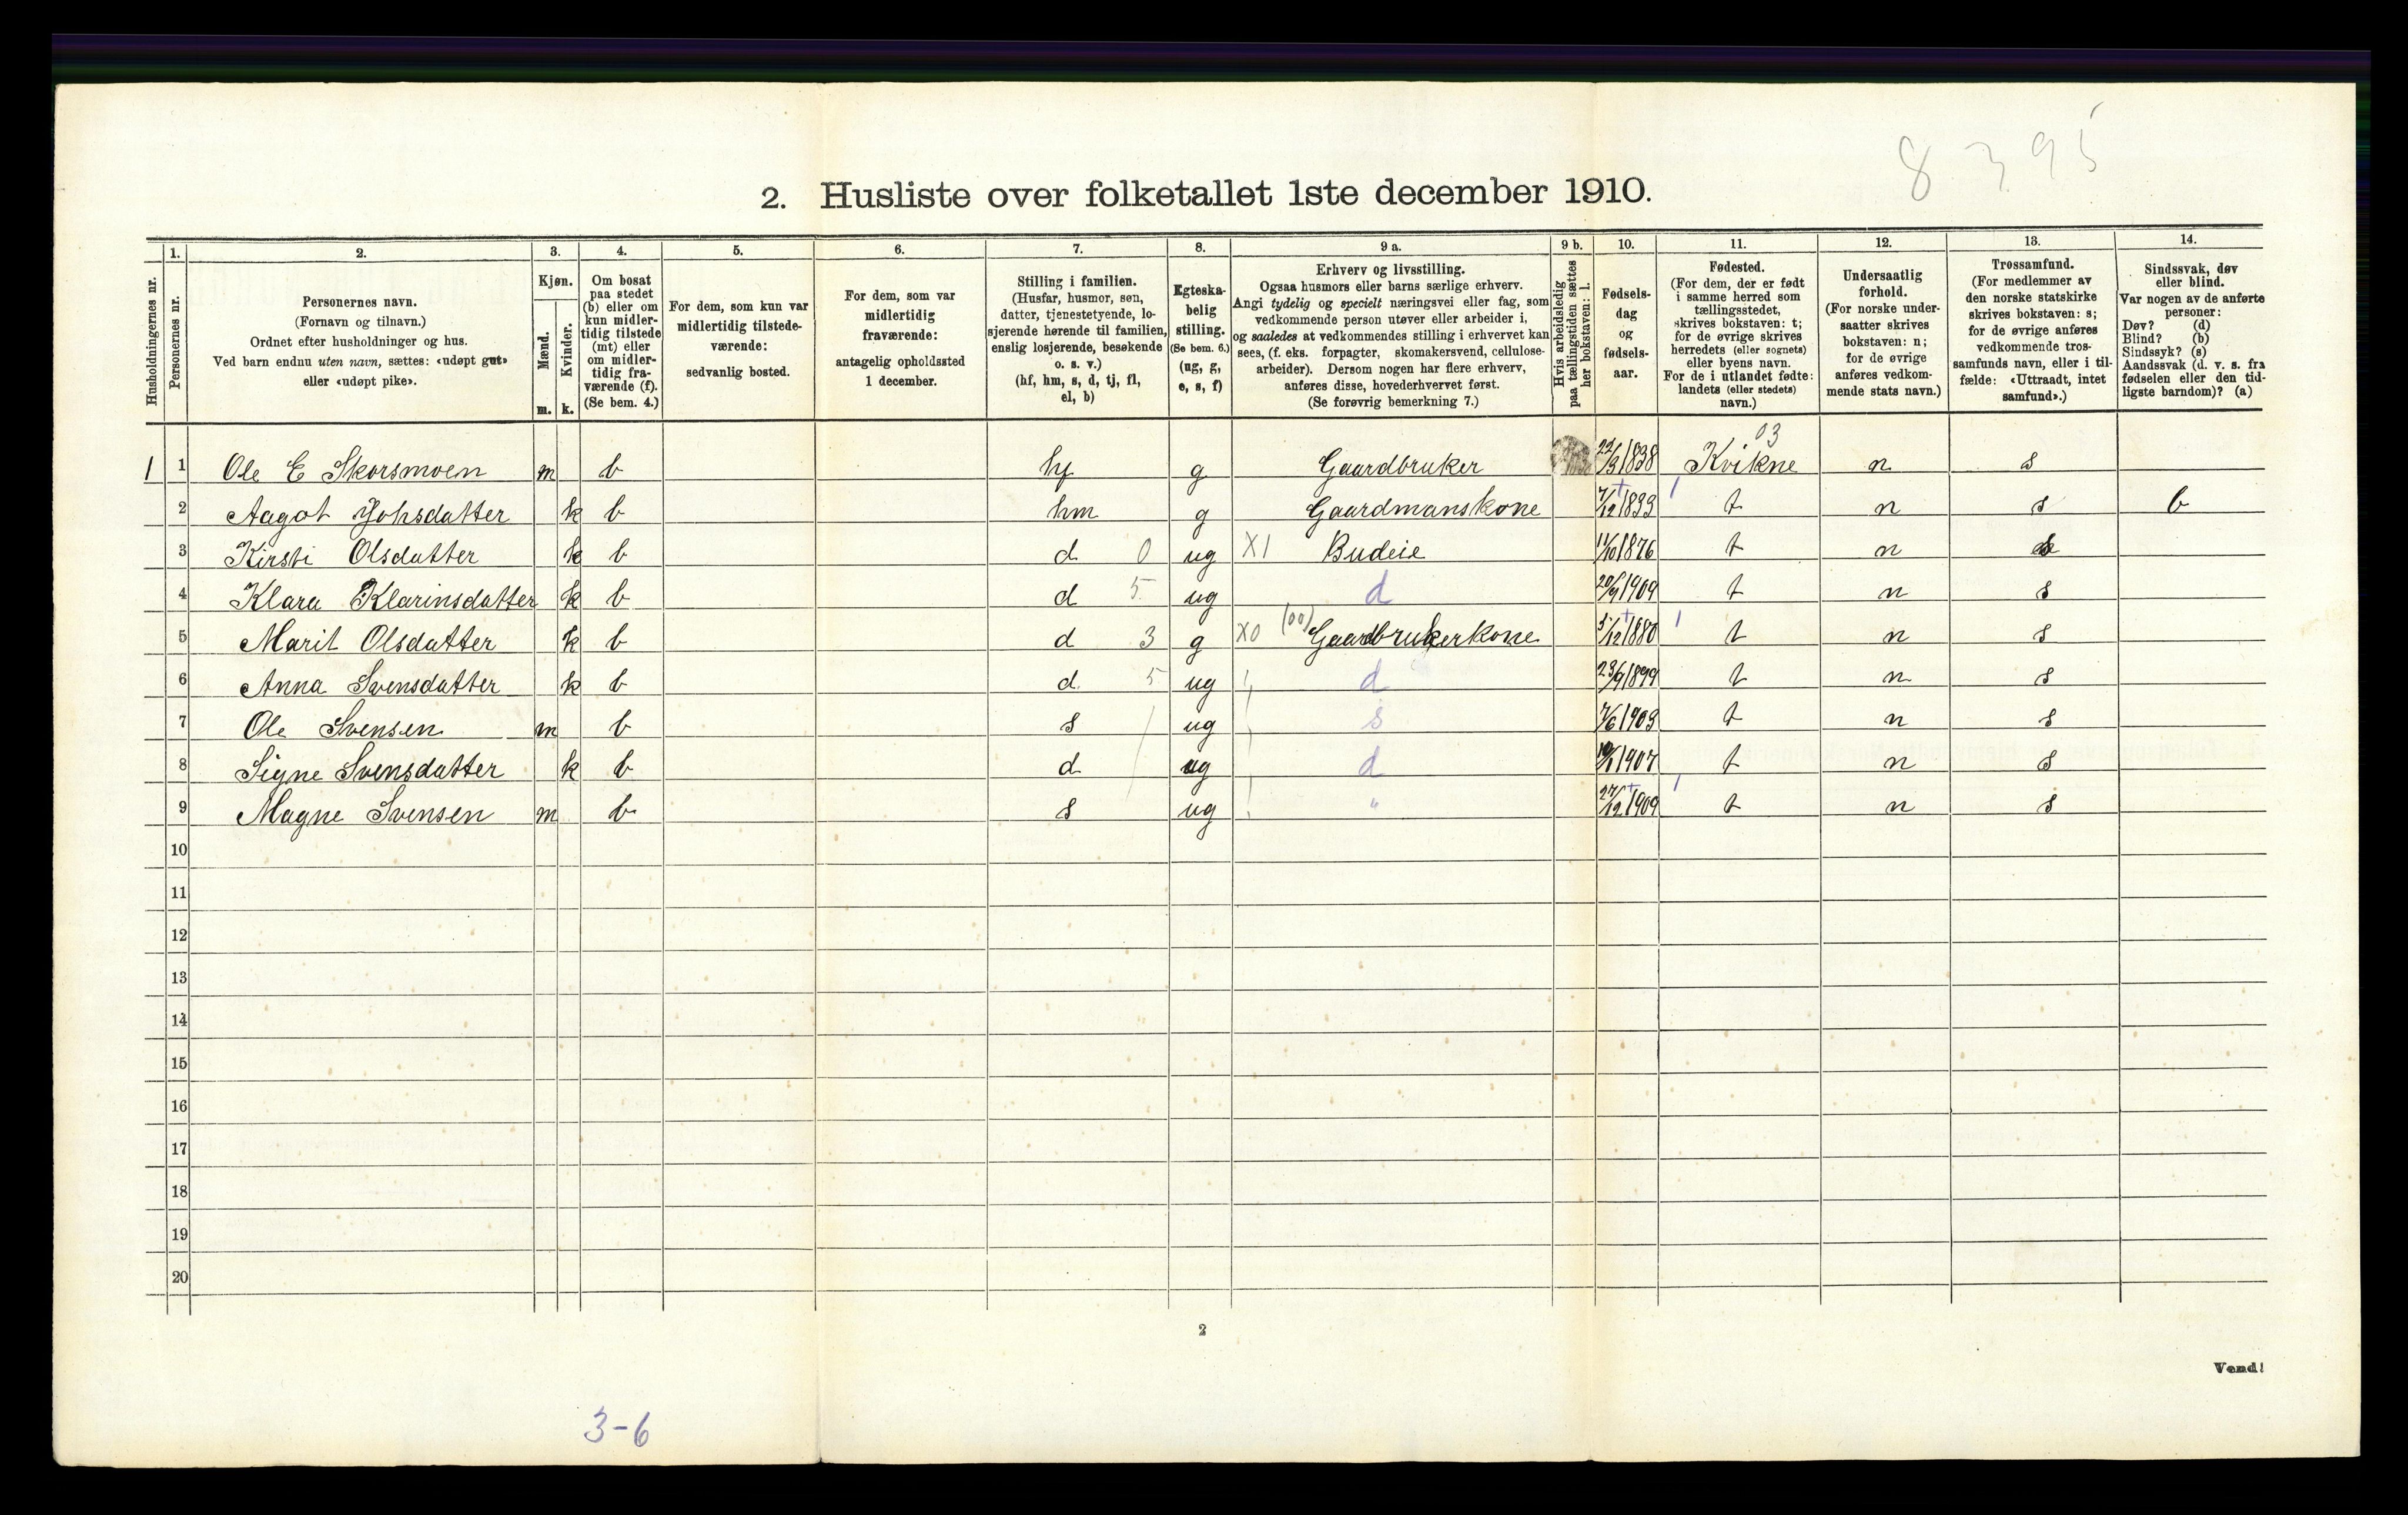 8395
2. Husliste over folketallet 1ste december 1910.
Husholdningernes nr.
1.
Personernes nr.
2.
Personernes navn.
(Fornavn og tilnavn.)
Ordnet efter husholdninger og hus.
Ved barn endnu uten navn, sættes: «udøpt gut»
eller «udøpt pike».
3.
Kjøn.
Mænd.
Kvinder.
m. k.
4.
Om bosat
paa stedet
(b) eller om
kun midler-
tidig tilstede
(mt) eller
om midler-
tidig fra-
værende (f).
(Se bem. 4.)
5.
For dem, som kun var
midlertidig tilstede-
værende:
sedvanlig bosted.
6.
For dem, som var
midlertidig
fraværende:
antagelig opholdssted
1 december.
7.
Stilling i familien.
(Husfar, husmor, søn,
datter, tjenestetyende, lo-
sjerende hørende til familien,
enslig losjerende, besøkende
o. s. v.)
(hf, hm, s, d, tj, fl,
el, b)
8.
Egteska-
belig
stilling.
(Se bem. 6.)
(ug, g,
e, s, f)
9 a.
Erhverv og livsstilling.
Ogsaa husmors eller barns særlige erhverv.
Angi tydelig og specielt næringsvei eller fag, som
vedkommende person utøver eller arbeider i,
og saaledes at vedkommendes stilling i erhvervet kan
sees, (f. eks. forpagter, skomakersvend, cellulose-
arbeider). Dersom nogen har flere erhverv,
anføres disse, hovederhvervet først.
(Se forøvrig bemerkning 7.)
9 b.
Hvis arbeidsledig
paa tællingstiden sættes
her bokstaven: l.
10.
Fødsels-
dag
og
fødsels-
aar.
11.
Fødested.
(For dem, der er født
i samme herred som
tællingsstedet,
skrives bokstaven: t;
for de øvrige skrives
herredets (eller sognets)
eller byens navn.
For de i utlandet fødte:
landets (eller stedets)
navn.)
12.
Undersaatlig
forhold.
(For norske under-
saatter skrives
bokstaven: n;
for de øvrige
anføres vedkom-
mende stats navn.)
13.
Trossamfund.
(For medlemmer av
den norske statskirke
skrives bokstaven: s;
for de øvrige anføres
vedkommende tros-
samfunds navn, eller i til-
fælde: «Uttraadt, intet
samfund».)
14.
Sindssvak, døv
eller blind.
Var nogen av de anførte
personer:
Døv? (d)
Blind? (b)
Sindssyk? (s)
Aandssvak (d. v. s. fra
fødselen eller den tid-
ligste barndom)? (a)
03
1 1 Ole E Skorsmoen m b hf g Gaardbruker 22/3 1838 Kvikne n s
2 Aagot Johsdatter k b hm g Gaardmanskone 7/12 1833 t n s b
3 Kirsti Olsdatter k b d 0 ug X1 Budeie 11/10 1876 t n s
4 Klara Klarinsdatter k b d 5 ug d 20/9 1909 t n s
5 Marit Olsdatter k b d 3 g X0 (00) Gaardbrukerkone 5/12 1880 t n s
6 Anna Svensdatter k b d 5 ug d 23/9 1899 t n s
7 Ole Svensen m b s ug s 7/6 1903 t n s
8 Signe Svensdatter k b d ug d 1907 t n s
9 Magne Svensen m b s ug " 27/12 1909 t n s
10
11
12
13
14
15
16
17
18
19
20
2
Vend!
3-6